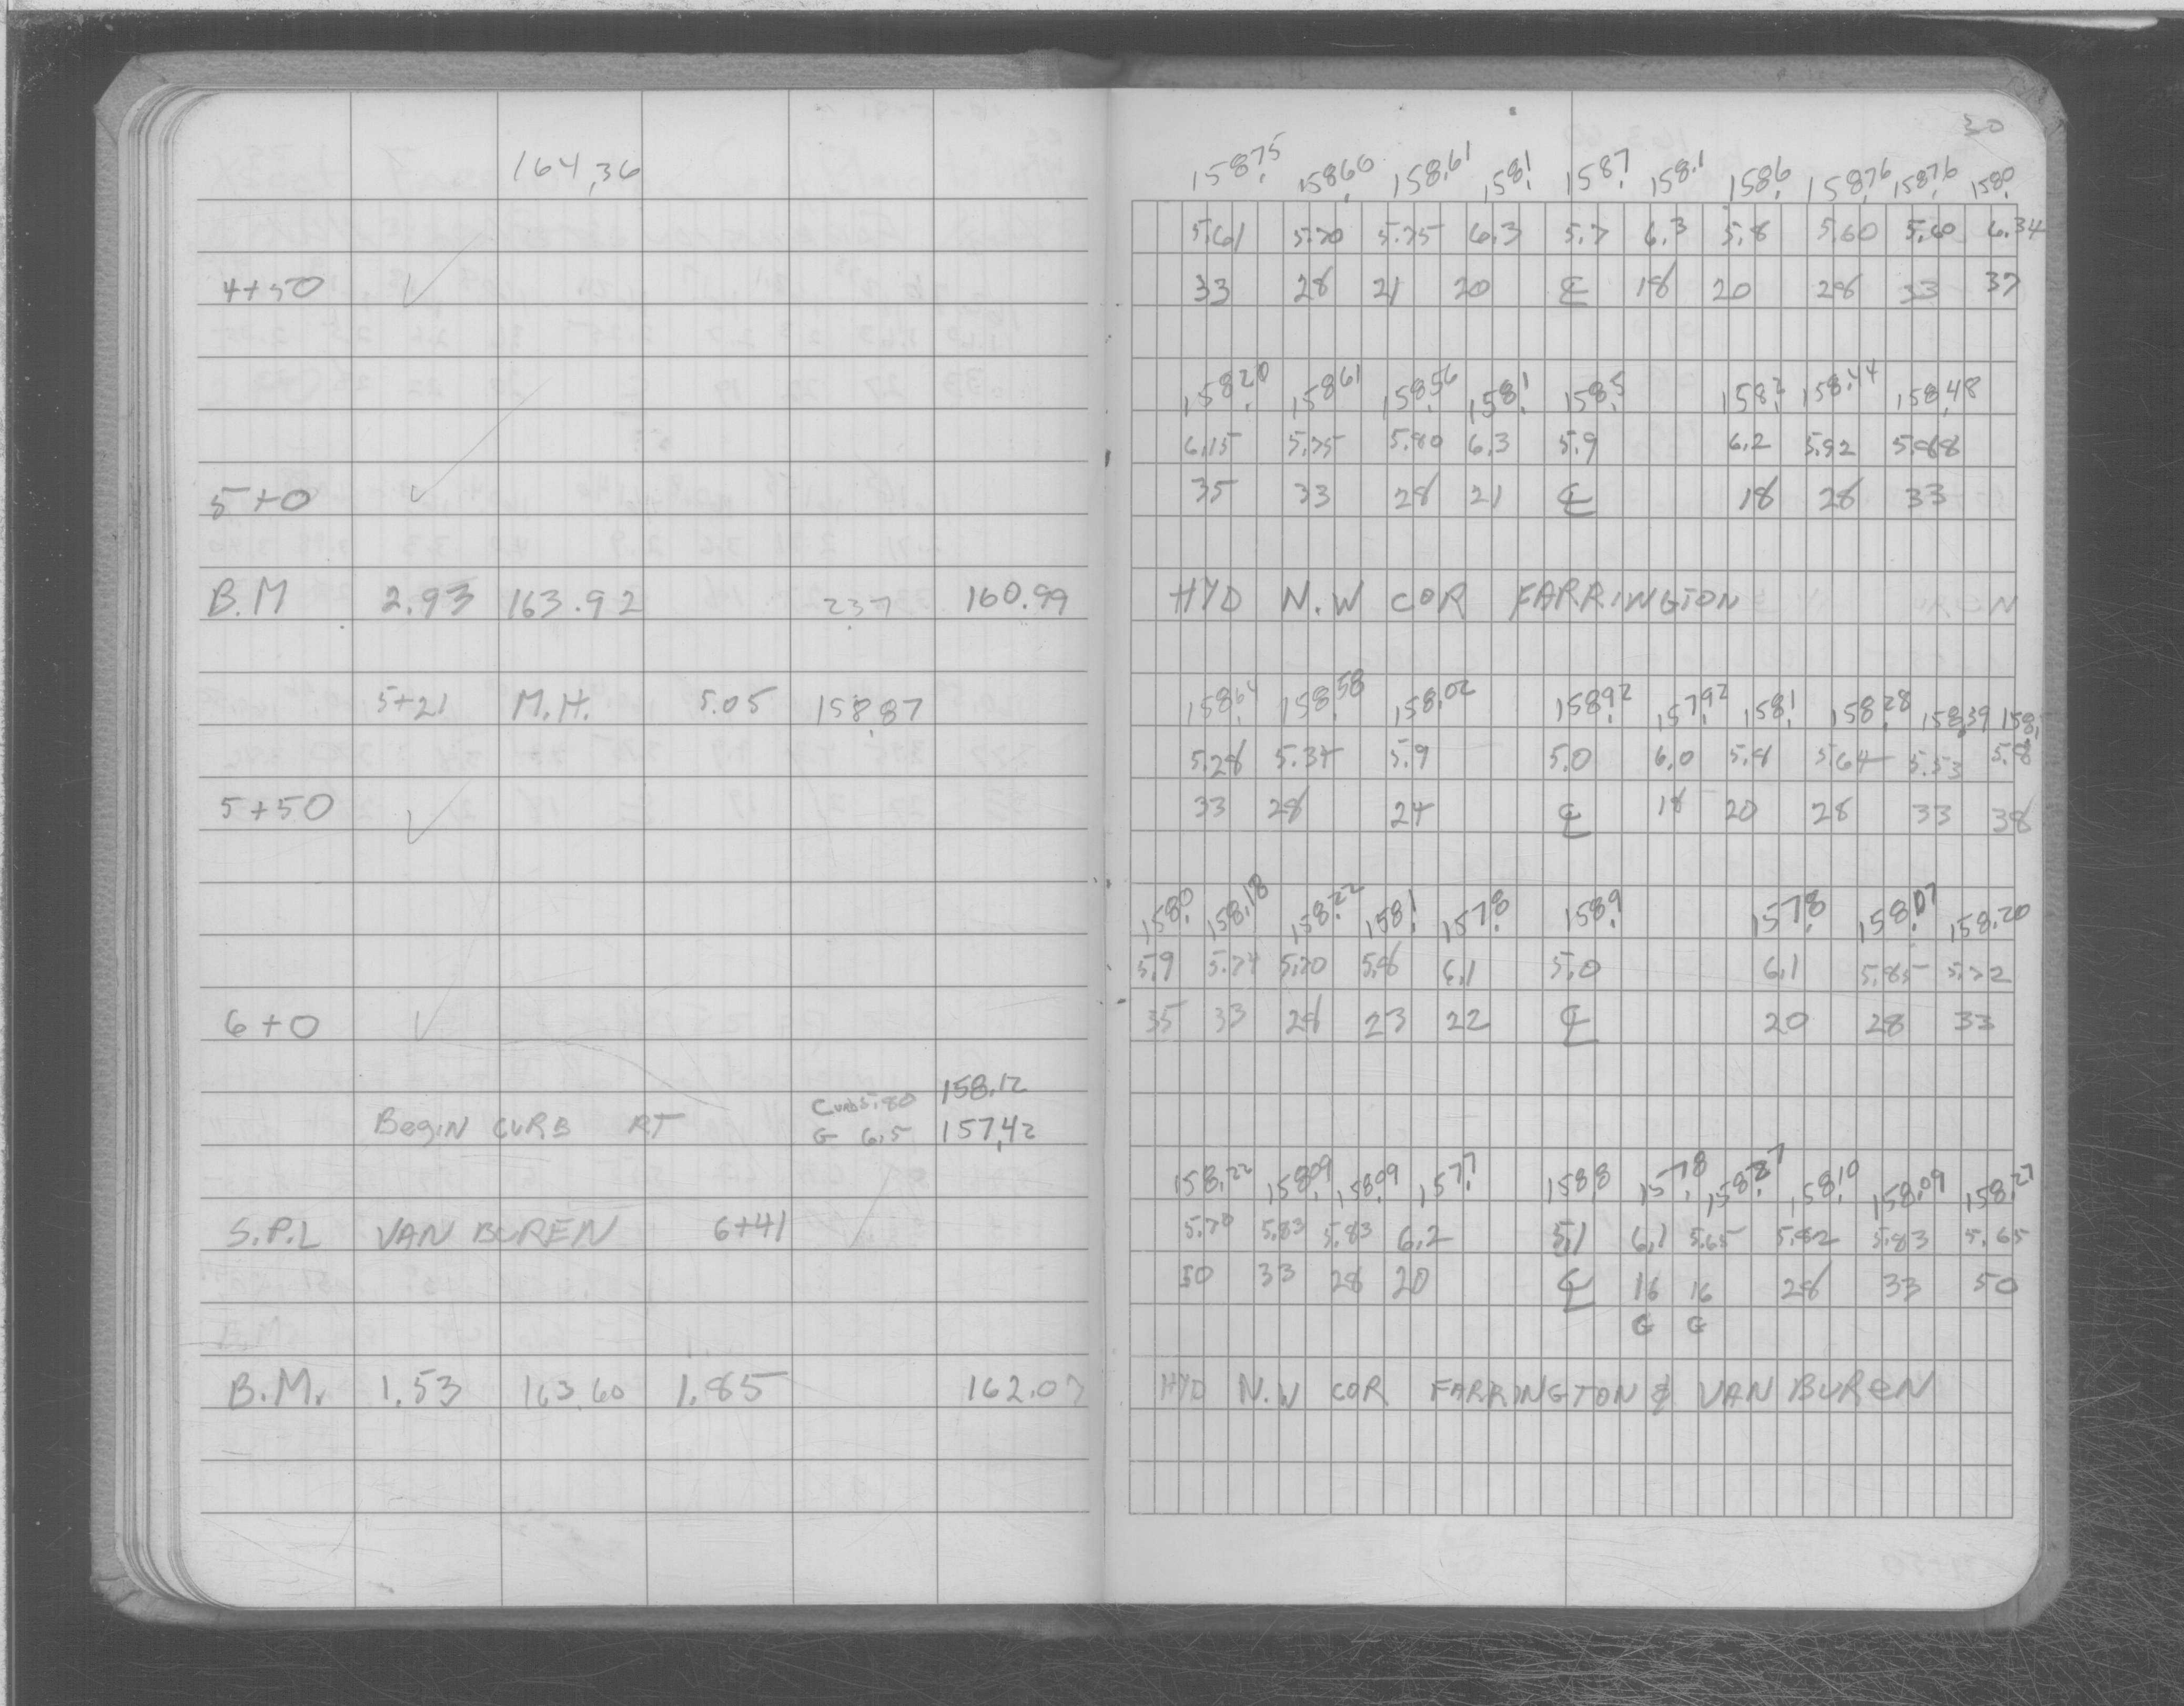 164.36
4+50 ✓
5+0 ✓
B.M 2.93 163.92 2.37 160.99
5+21 M.H. 5.05 158.87
5+50 ✓
6+0 ✓
Curb 5.80 158.12
Begin CURB RT G 6.5 157.42
S.P.L VAN BUREN 6+41 ✓
B.M. 1.53 163.60 1.85 162.07
30
158.75 158.60 158.61 158.1 158.7 158.1 158.6 158.76 158.76 158.0
5.61 5.70 5.75 6.3 5.7 6.3 5.8 5.60 5.60 6.34
33 28 21 20 ℄ 18 20 28 33 37
158.20 158.61 158.56 158.1 158.5 158.2 158.44 158.48
6.15 5.75 5.80 6.3 5.9 6.2 5.92 5.88
35 33 28 21 ℄ 18 28 33
HYD N.W COR FARRINGTON
158.64 158.58 158.02 158.92 157.92 158.1 158.28 158.39 158.1
5.28 5.34 5.9 5.0 6.0 5.8 5.64 5.53 5.8
33 28 24 ℄ 18 20 28 33 38
158.0 158.18 158.22 158.1 157.8 158.9 157.8 158.07 158.20
5.9 5.74 5.70 5.8 6.1 5.0 6.1 5.85 5.72
35 33 28 23 22 ℄ 20 28 33
158.22 158.09 158.09 157.7 158.8 157.8 158.27 158.10 158.09 158.27
5.70 5.83 5.83 6.2 5.1 6.1 5.65 5.82 5.83 5.65
50 33 28 20 ℄ 16 16 28 33 50
G G
HYD N.W COR FARRINGTON & VAN BUREN